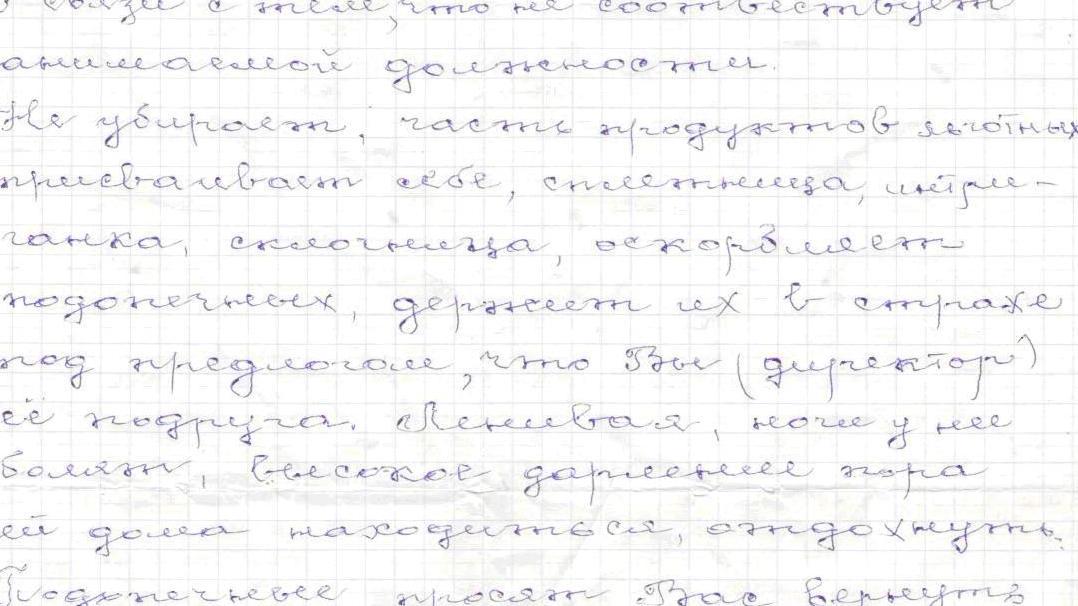 в связи с тем, что не соответствует
анимаемой должности.
Не убирает, часть продуктов льготных
присваивает себе, сплетница, интри-
ганка, склочница, оскорбляет
подопечных, держит их в страхе
под предлогом, что Вы (директор)
её подруга. Ленивая, ноги у нее
болят, высокое давление пора
ей дома находиться, отдохнуть.
Подопечные просят Вас вернуть